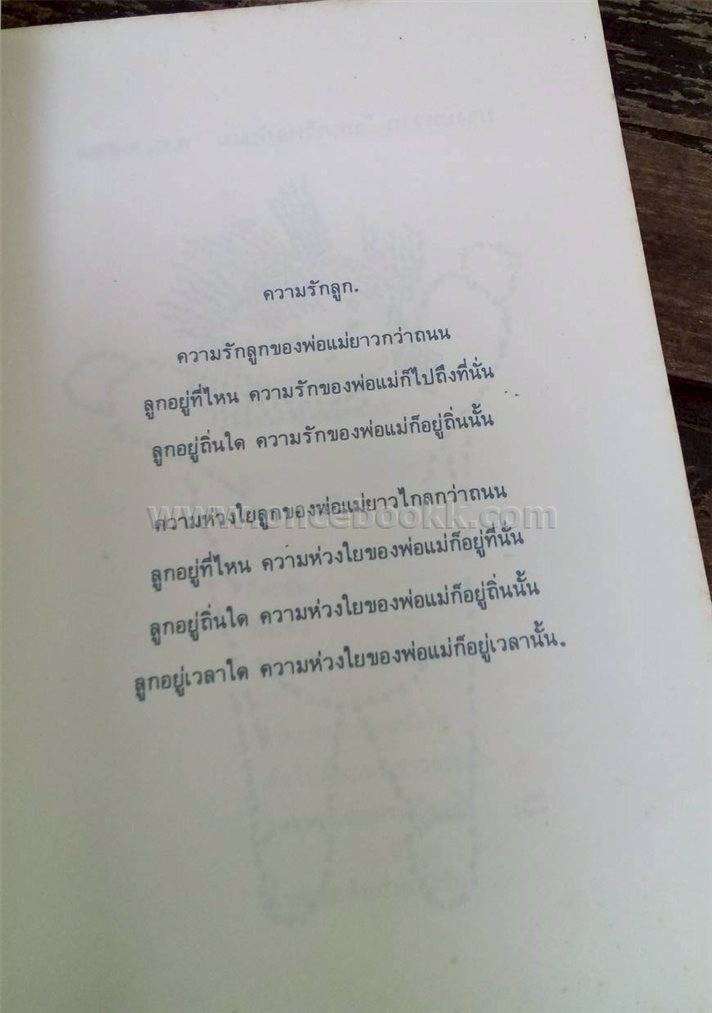 ความรักลูก.
ความรักลูกของพ่อแม่ยาวกว่าถนน
ลูกอยู่ที่ไหน ความรักของพ่อแม่ก็ไปถึงที่นั่น
ลูกอยู่ถิ่นใด ความรักของพ่อแม่ก็อยู่ถิ่นนั้น
ความห่วงใยลูกของพ่อแม่ยาวไกลกว่าถนน
ลูกอยู่ที่ไหน ความห่วงใยของพ่อแม่ก็อยู่ที่นั้น
ลูกอยู่ถิ่นใด ความห่วงใยของพ่อแม่ก็อยู่ถิ่นนั้น
ลูกอยู่เวลาใด ความห่วงใยของพ่อแม่ก็อยู่เวลานั้น.